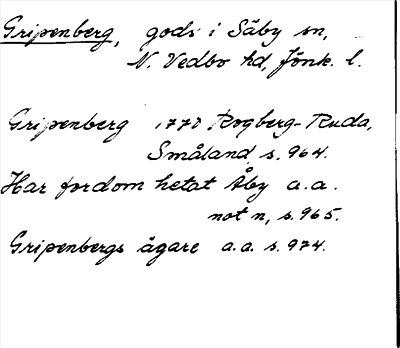 Gripenberg, gods i Säby sn,
N. Vedbo hd, Jönk. l.
Gripenberg 1770 Rogberg-Ruda,
Småland, s. 964.
Har fordom hetat Åby a.a.
not n, s. 965.
Gripenbergs ägare a.a. s. 974.